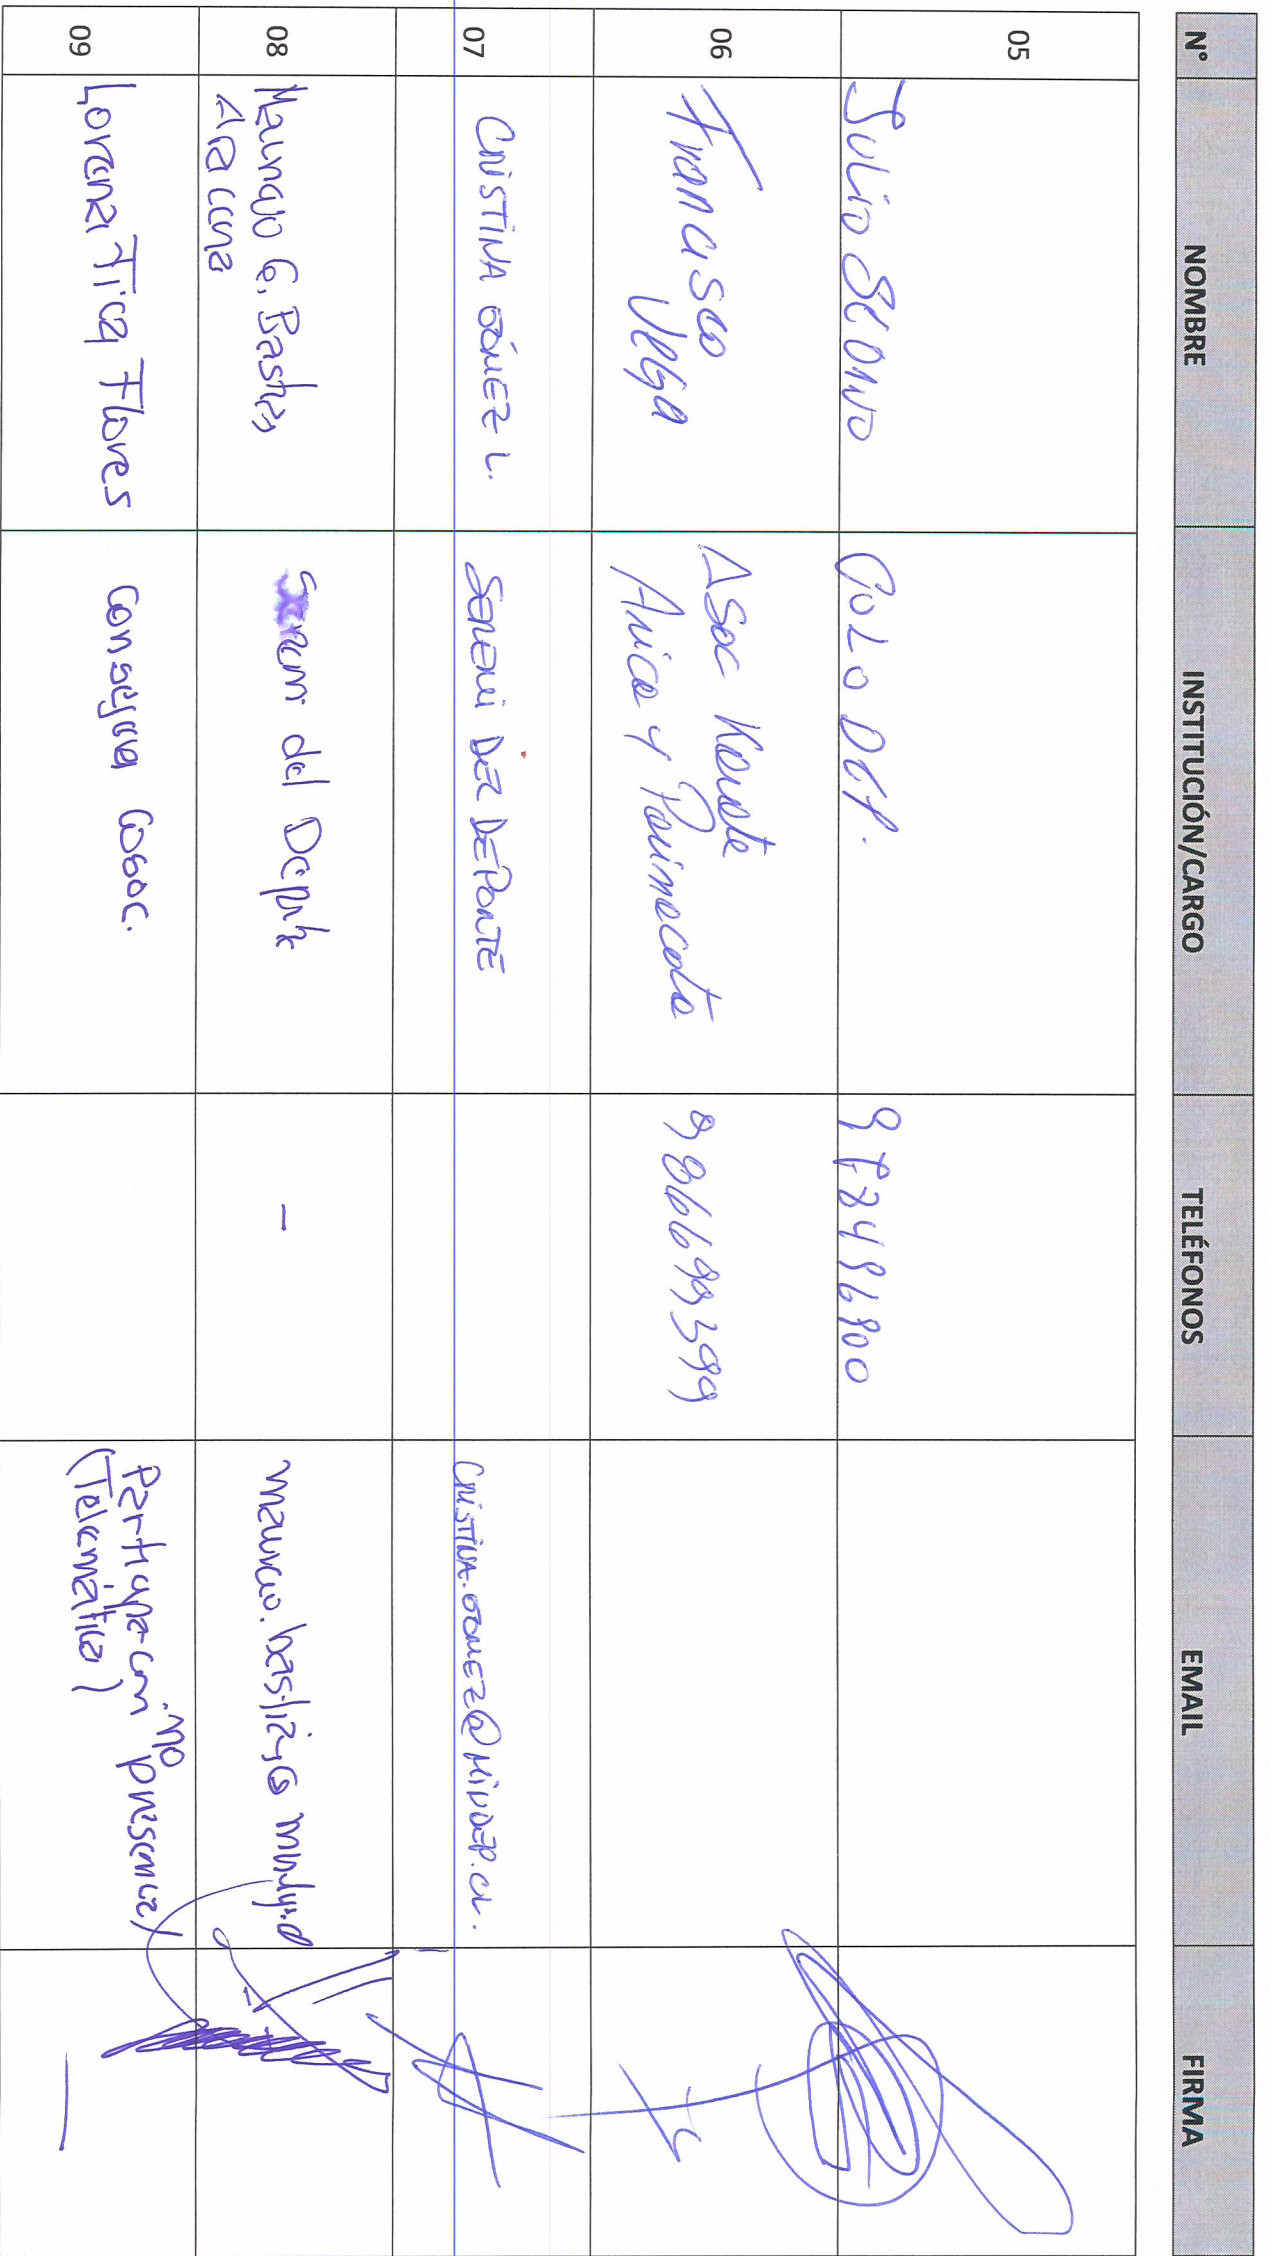 N° NOMBRE INSTITUCIÓN/CARGO TELÉFONOS EMAIL FIRMA
05 Julio
06 Francisco Vega Asoc Karate Arica y Parinacota 986699399
07 CRISTINA GÓMEZ L. SEREMI DEL DEPORTE CRISTINA.GOMEZ@MINDEP.CL.
08 Mauricio G. Bastías Aracena Seremi del Deporte -
09 Lorenza Ticq Flores Consejera Cosoc. Participación no presencial
(Telemática)